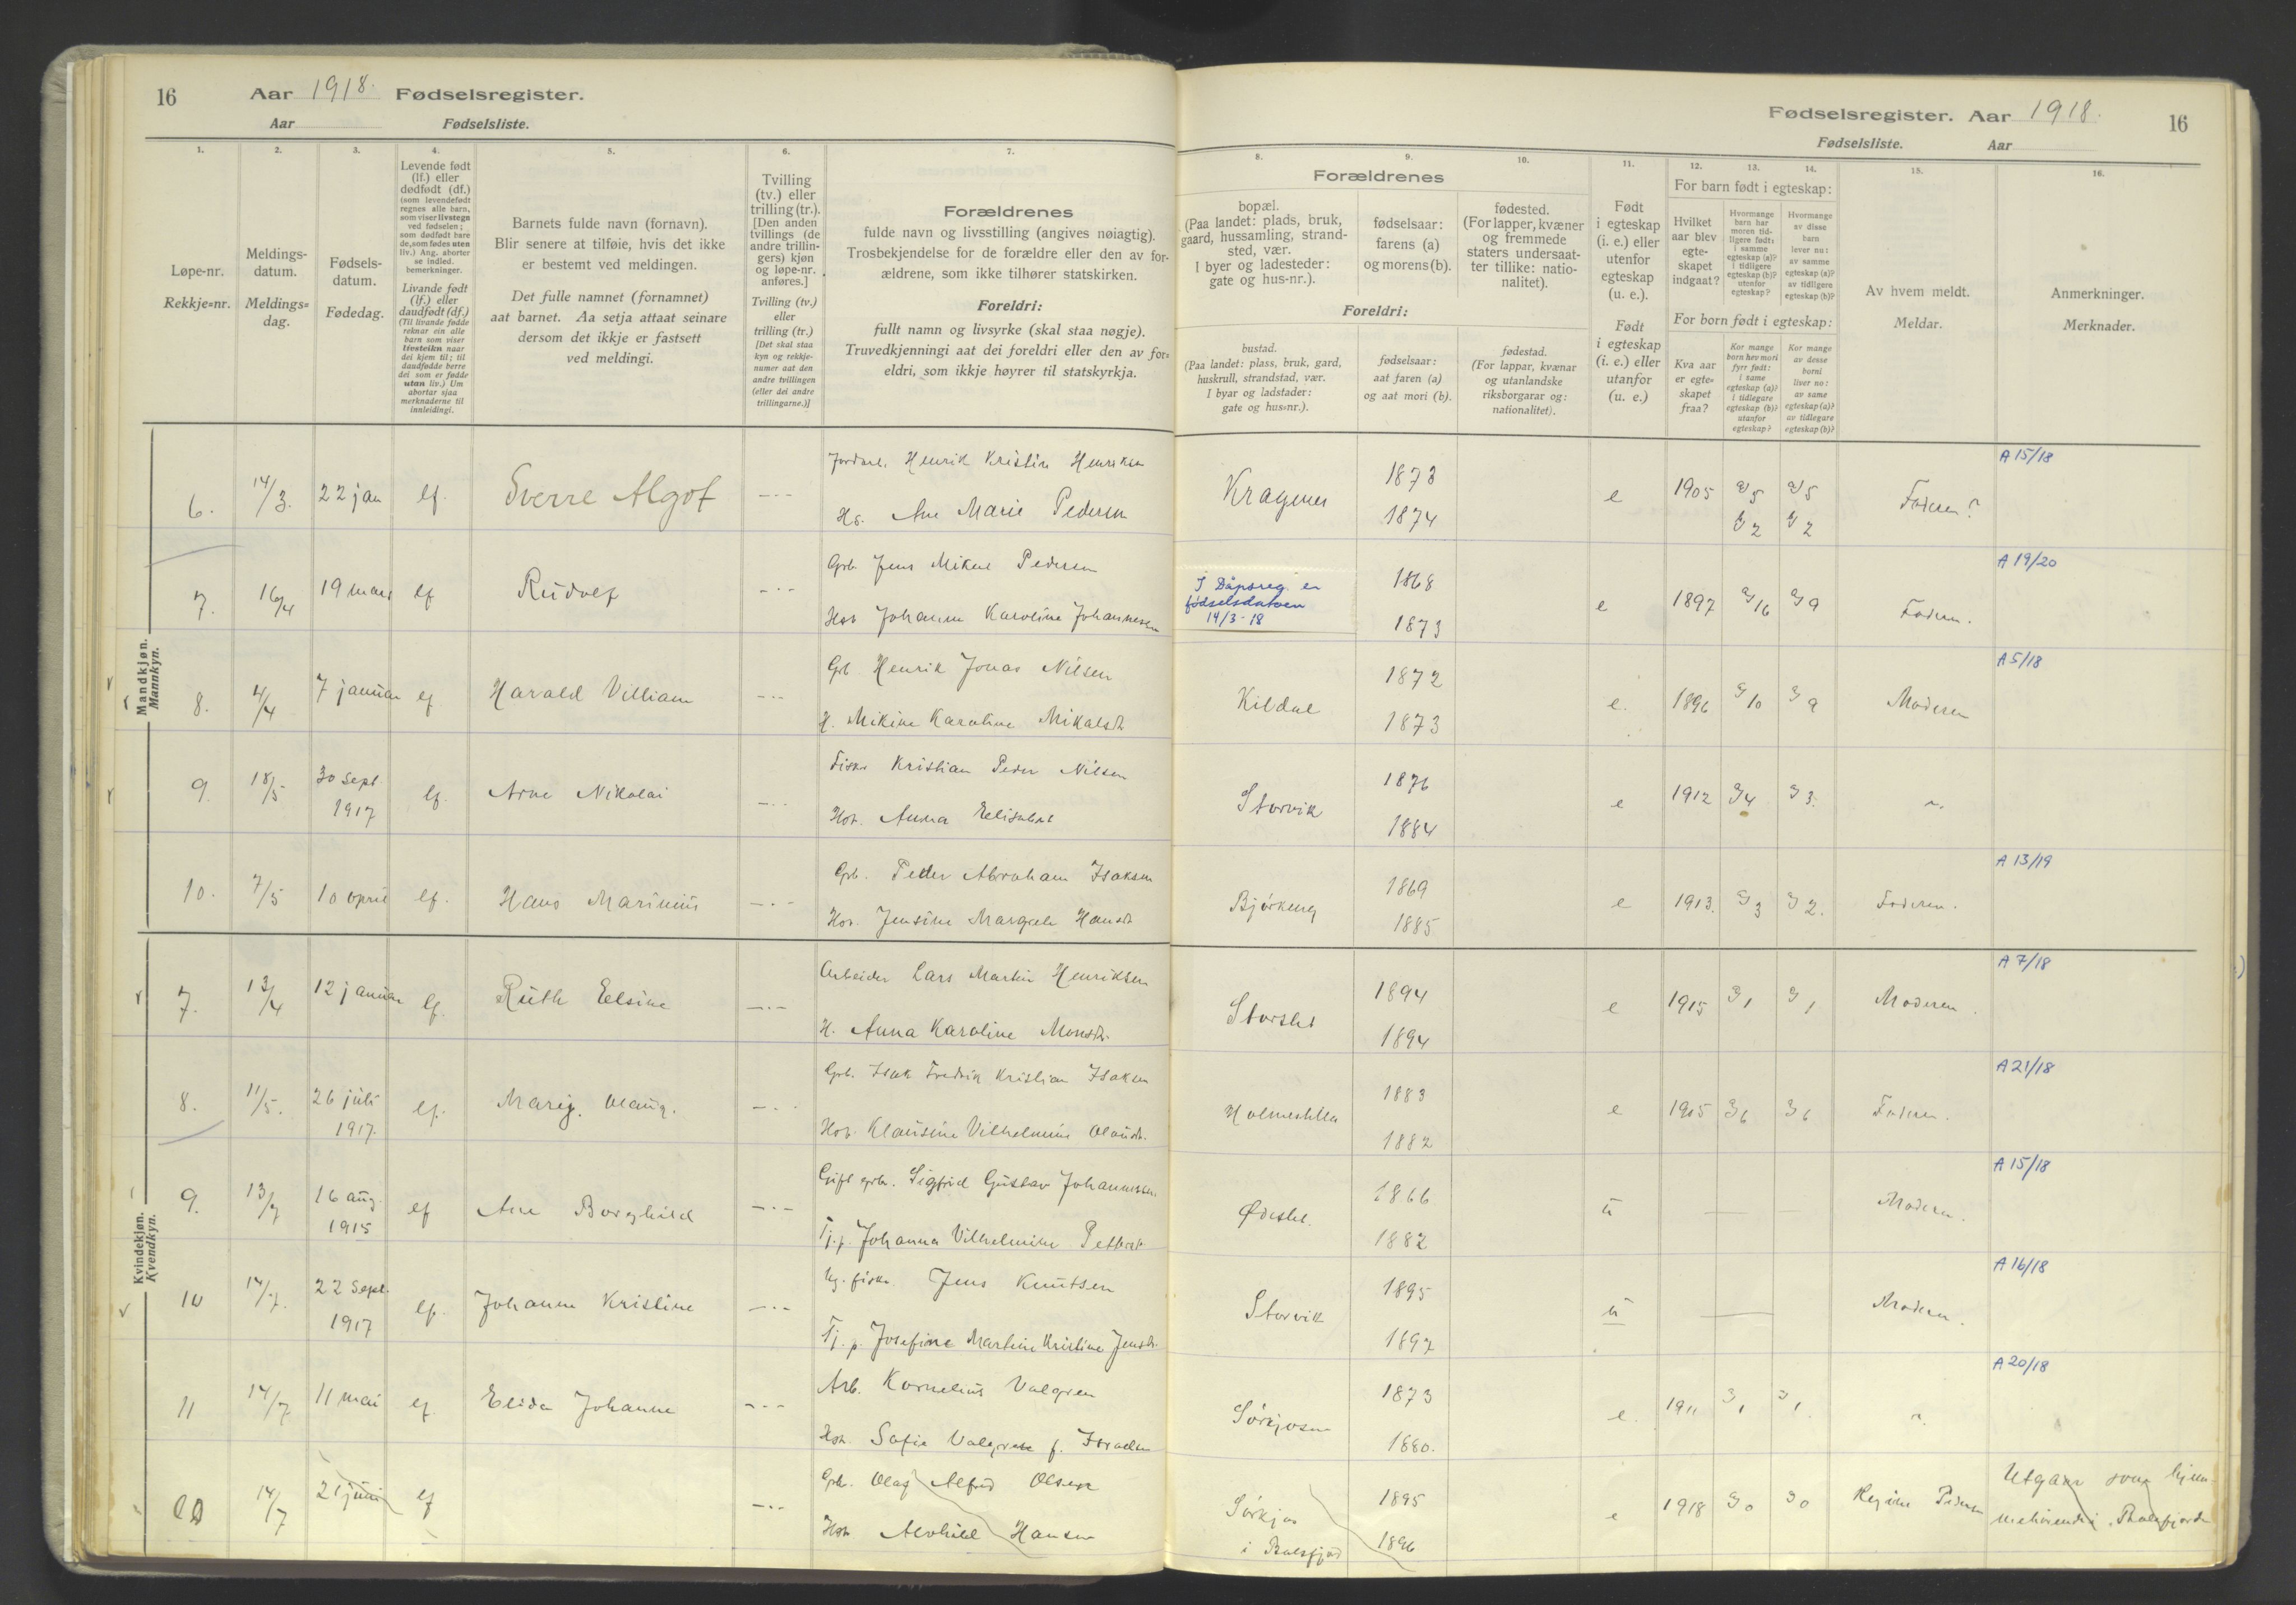 16
Aar 1918. Fødselsregister.
Aar Fødselsliste.
Fødselsregister. Aar 1918.
16
Fødselsliste. Aar
1.
Løpe-nr.
Rekkje=nr.
2.
Meldings-
datum.
Meldings=
dag.
3.
Fødsels-
datum.
Fødedag.
4.
Levende født
(lf.) eller
dødfødt (df.)
(som levendefødt
regnes alle barn,
som viser livstegn
ved fødselen;
som dødfødt bare
de, som fødes uten
liv.) Ang. aborter
se indled.
bemerkninger.
Livande født
(lf.) eller
daudfødt (df.)
(Til livande fødde
reknar ein alle
barn som viser
livsteikn naar
dei kjem til; til
daudfødde berre
dei som er fødde
utan liv.) Um
abortar sjaa
merknaderne til
innleidingi.
5.
Barnets fulde navn (fornavn).
Blir senere at tilføie, hvis det ikke
er bestemt ved meldingen.
Det fulle namnet (fornamnet)
aat barnet. Aa setja attaat seinare
dersom det ikkje er fastsett
ved meldingi.
6.
Tvilling
(tv.) eller
trilling (tr.).
[Den anden
tvillings (de
andre trillin-
gers) kjøn
og løpe-nr.
anføres.]
Tvilling (tv.)
eller
trilling (tr.)
[Det skal staa
kyn og rekkje-
numer aat den
andre tvillingen
(eller dei andre
trillingarne.)]
7.
Forældrenes
fulde navn og livsstilling (angives nøiagtig).
Trosbekjendelse for de forældre eller den av for-
ældrene, som ikke tilhører statskirken.
Foreldri:
fullt namn og livsyrke (skal staa nøgje).
Truvedkjenningi aat dei foreldri eller den av for=
eldri, som ikkje høyrer til statskyrkja.
Forældrenes
8.
bopæl.
(Paa landet: plads, bruk,
gaard, hussamling, strand-
sted, vær.
I byer og ladesteder:
gate og hus-nr.).
9.
fødselsaar:
farens (a)
og morens (b).
10.
fødested.
(For lapper, kvæner
og fremmede
staters undersaat-
ter tillike: natio-
nalitet).
Foreldri:
bustad.
(Paa landet: plass, bruk, gard,
huskrull, strandstad, vær.
I byar og ladstader:
gate og hus=nr.).
fødselsaar:
aat faren (a)
og aat mori (b).
fødestad.
(For lappar, kvænar
og utanlandske
riksborgarar og:
nationalitet).
11.
Født
i egteskap
(i. e.) eller
utenfor
egteskap
(u. e.).
Født
i egteskap
(i. e.) eller
utanfor
(u. e.)
12. 13. 14.
For barn født i egteskap:
Hvilket
aar blev
egte-
skapet
indgaat?
Hvormange
barn har
moren tid-
ligere født:
i samme
egteskap (a)?
i tidligere
egteskap (b)?
utenfor
egteskap?
Hvormange
av disse
barn
lever nu:
av samme
egteskap (a)?
av tidligere
egteskap (b)?
For born født i egteskap:
Kva aar
er egte=
skapet
fraa?
Kor mange
born hev mori
fyrr født:
i same
egteskap (a)?
i tidlegare
egteskap (b)?
utanfor
egteskap?
Kor mange
av desse
borni
liver no:
av same
egteskap (a)?
av tidlegare
egteskap (b)?
15.
Av hvem meldt.
Meldar.
16.
Anmerkninger.
Merknader.
Mandkjøn.
Mannkyn.
6. 14/3. 22 jan lf. Sverre Algot Henrik Kristin Henriksen 1873 e 1905 Faderen? A 15/18
Ane Marie Pedersen 1874
7. 16/4 19 mars lf Rudolf Grb. Jens Mikal Pedersen
I Dåpsreg. er
fødselsdatoen
14/3-18
1868 e 1897 Faderen. A 19/20
Hst Johanna Karoline Johannesen 1873
8. 4/4 7 januar lf Harald Villiam Grb Henrik Jonas Nilsen Kildal 1872 e. 1896 Moderen A 5/18
H. Mikine Karoline Mikalsdt 1873
9. 18/5 30 sept 1917 lf. Arne Nikolai Fisker Kristian Peder Nilsen Storvik 1876 e 1912
Hst. Anna Elisabet 1884
10. 7/5 10 april lf. Hans Marinius Grb. Peder Abraham Isaksen Bjørkeng 1869 e 1913. Faderen. A 13/19
Hst. Jensine Margrete Hansdt 1885
Kvindekjøn.
Kvendkyn.
7. 13/4 12 januar lf. Ruth Elsine Arbeider Lars Martin Henriksen Storslet 1894 e 1915 Moderen. A 7/18
H. Anna Karoline Monsdt. 1894
8. 11/5. 26 juli 1917. lf. Grb. Isak Fredrik Kristian Isaksen 1883 e 1905 Faderen. A 21/18
Hst. Klausine Vilhelmine Olausdt. 1882
9. 13/7 16 aug. 1915 lf Ane Borghild Gift grb. Sigfrid Gustav Johannessen 1866 u Moderen. A 15/18
Tj.p. Johanna Vilhelmine 1882
10 14/7. 22 Sept. 1917 lf. Johanne Kristine Ug. fisker. Jens Knutsen Storvik 1895 u Moderen. A 16/18
Tj. p. Josefine Martine Kristine Jensdt. 1897
11 14/7 11 mai lf. Elida Johanne Arb. Kornelius Valgren Sørkjosen 1873 e. 1911 A 20/18
Hst. Sofie Valgren f. Israelsen 1880.
14/7 21 juni lf Grb. Olaf Alfred Olsen Sørkjos 1895 e 1918 Regine Pedersen Utgaar som hjem-
Hst. Alvhild Hansen i Balsfjord 1896